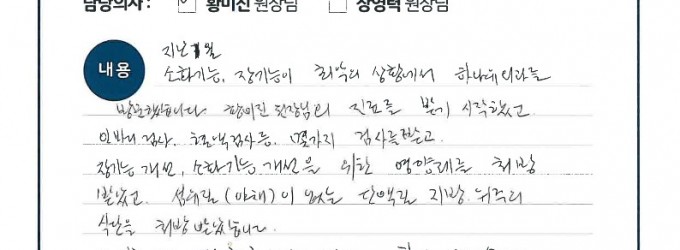 담당의사 : 황미진 원장님 장영력 원장님
내용
지난 1월
소화기능, 장기능이 최악의 상황에서 하나네외과를
방문했습니다. 황미진 원장님의 진료를 받기 시작했고
인바디 검사, 혈액검사등, 몇가지 검사를 받고
장기능 개선, 소화기능 개선을 위한 영양제를 처방
받았고 섬유질(야채)이 없는 단백질 지방 위주의
식단을 처방 받았습니다